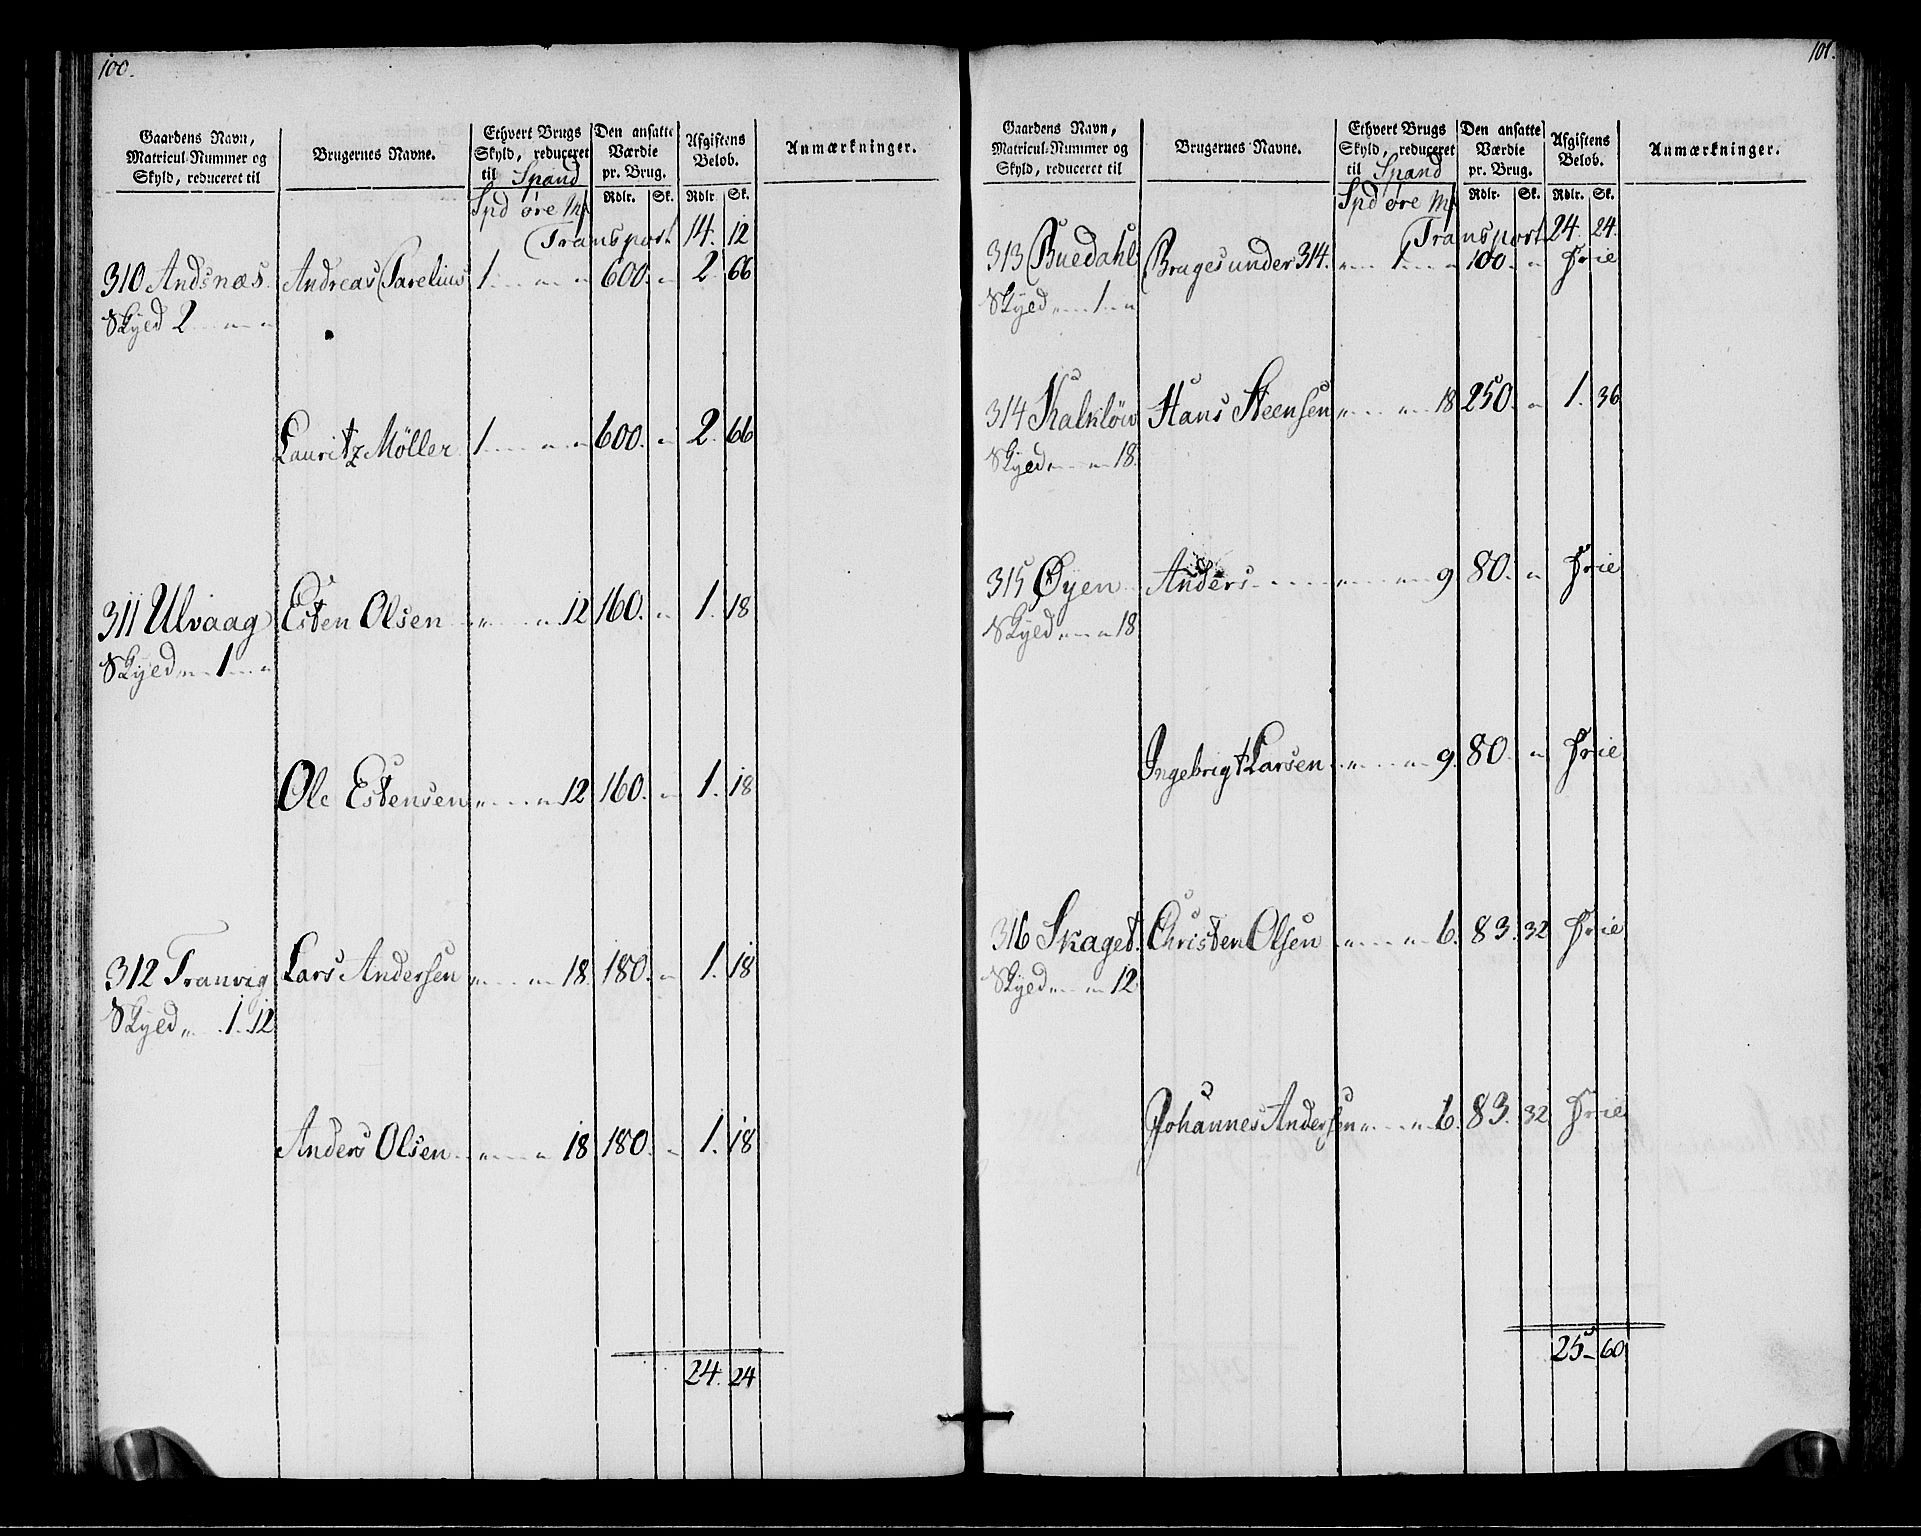 100.
Gaardens Navn, Matricul-Nummer og Skyld, reduceret til
Brugernes Navne.
Ethvert Brugs Skyld, reduceret til Spand
Spd øre Mk
Den ansatte Værdie pr. Brug.
Rdlr. Sk.
Afgiftens Belob.
Rdlr. Sk.
Anmærkninger.
Transport 14. 12
310 Andsnæs. Andreas Parelius 1 " " 600. " 2. 66
Skyed 2 " "
Lauritz Møller 1 " " 600. " 2. 66
311 Ulvaag Esten Olsen " " 12 160. " 1. 18
Skyed " 1 "
Ole Estensen " " 12 160. " 1. 18
312 Tranvig Lars Andersen " " 18 180. " 1. 18
Skyed " 1. 12
Anders Olsen " " 18 180. " 1. 18
24. 24
101.
Gaardens Navn, Matricul-Nummer og Skyld, reduceret til
Brugernes Navne.
Ethvert Brugs Skyld, reduceret til Spand
Spd øre Mk
Den ansatte Værdie pr. Brug.
Rdlr. Sk.
Afgiftens Belob.
Rdlr. Sk.
Anmærkninger.
Transport 24. 24.
313 Buedahl Bruges under 314. " 1 " 100. " Frie
Skyed " 1 "
314 Kalkløw Hans Steensen " " 18 250. " 1. 36
Skyed " " 18.
315 Øyen Anders " " 9 80. " Frie
Skyed " " 18
Ingebrigt Larsen " " 9. 80. " Frie
316 Skaget. Christen Olsen " " 6. 83. 32 Frie
Skyed " " 12
Johannes Andersen " " 6. 83. 32 Frie
25 60